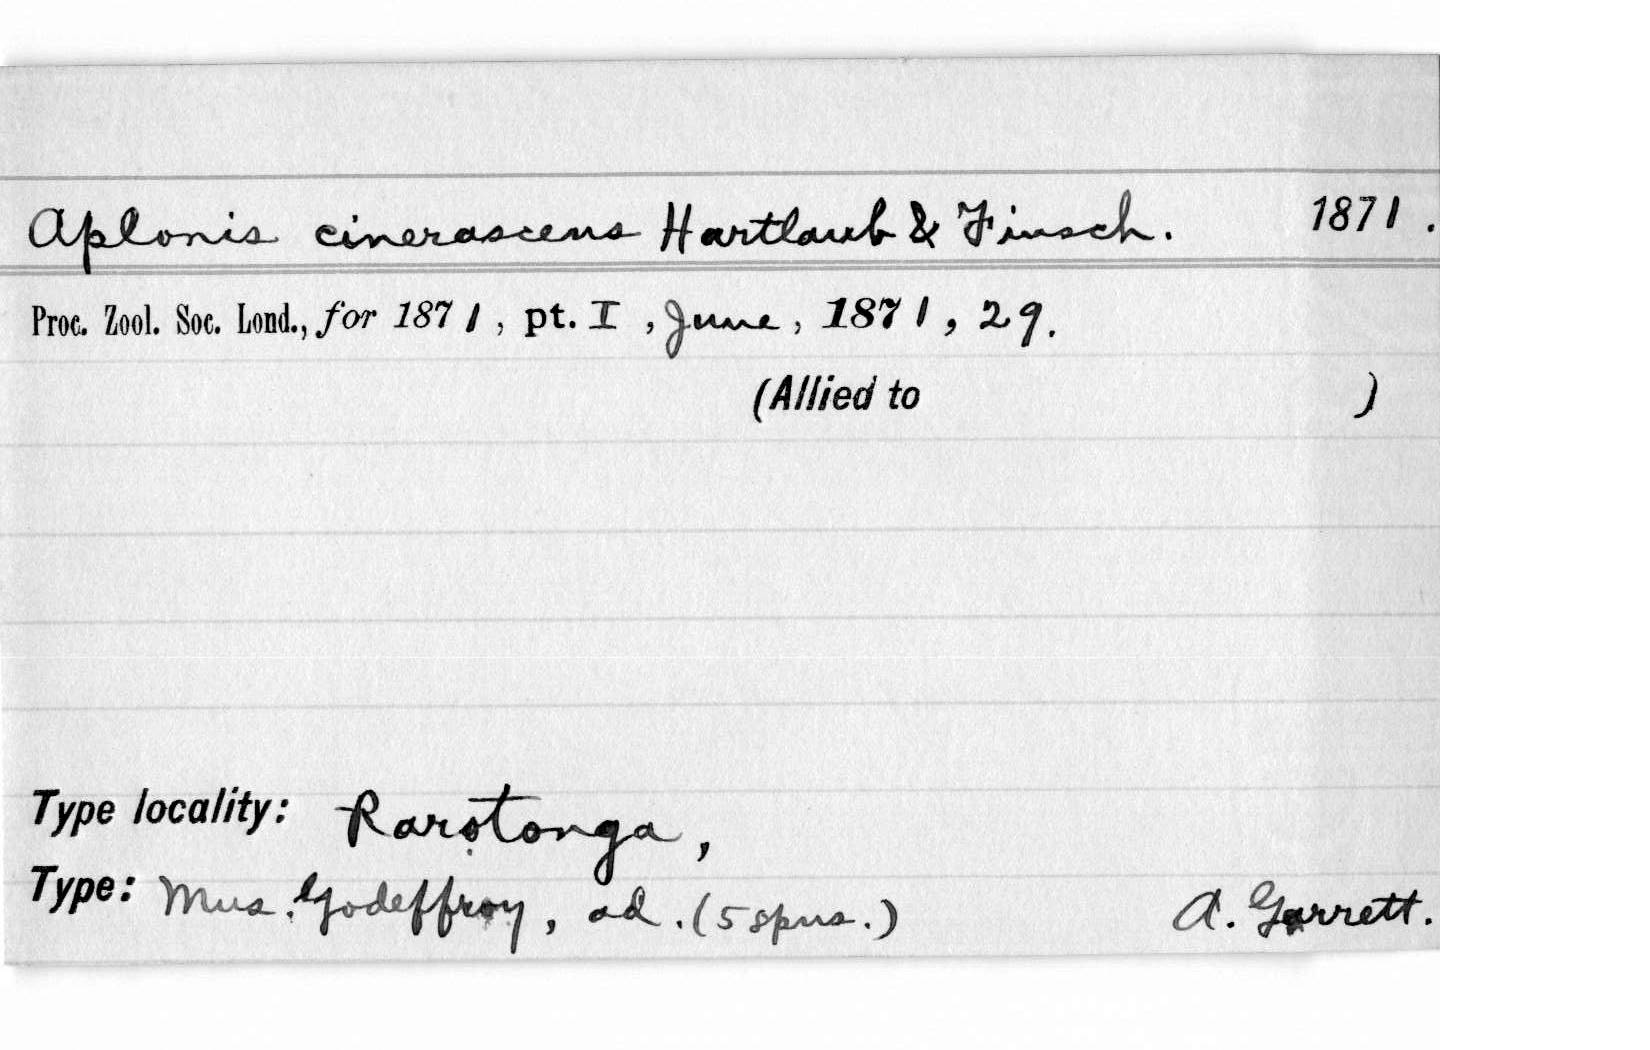 Aplonis cinerascens Hartlaub & Finsch. 1871.
Proc. Zool. Soc. Lond., for 1871, pt. I, June, 1871, 29.
(Allied to )
Type locality: Rarotonga,
Type: Mus. Godeffroy, ad. (5 spns.) A. Garrett.